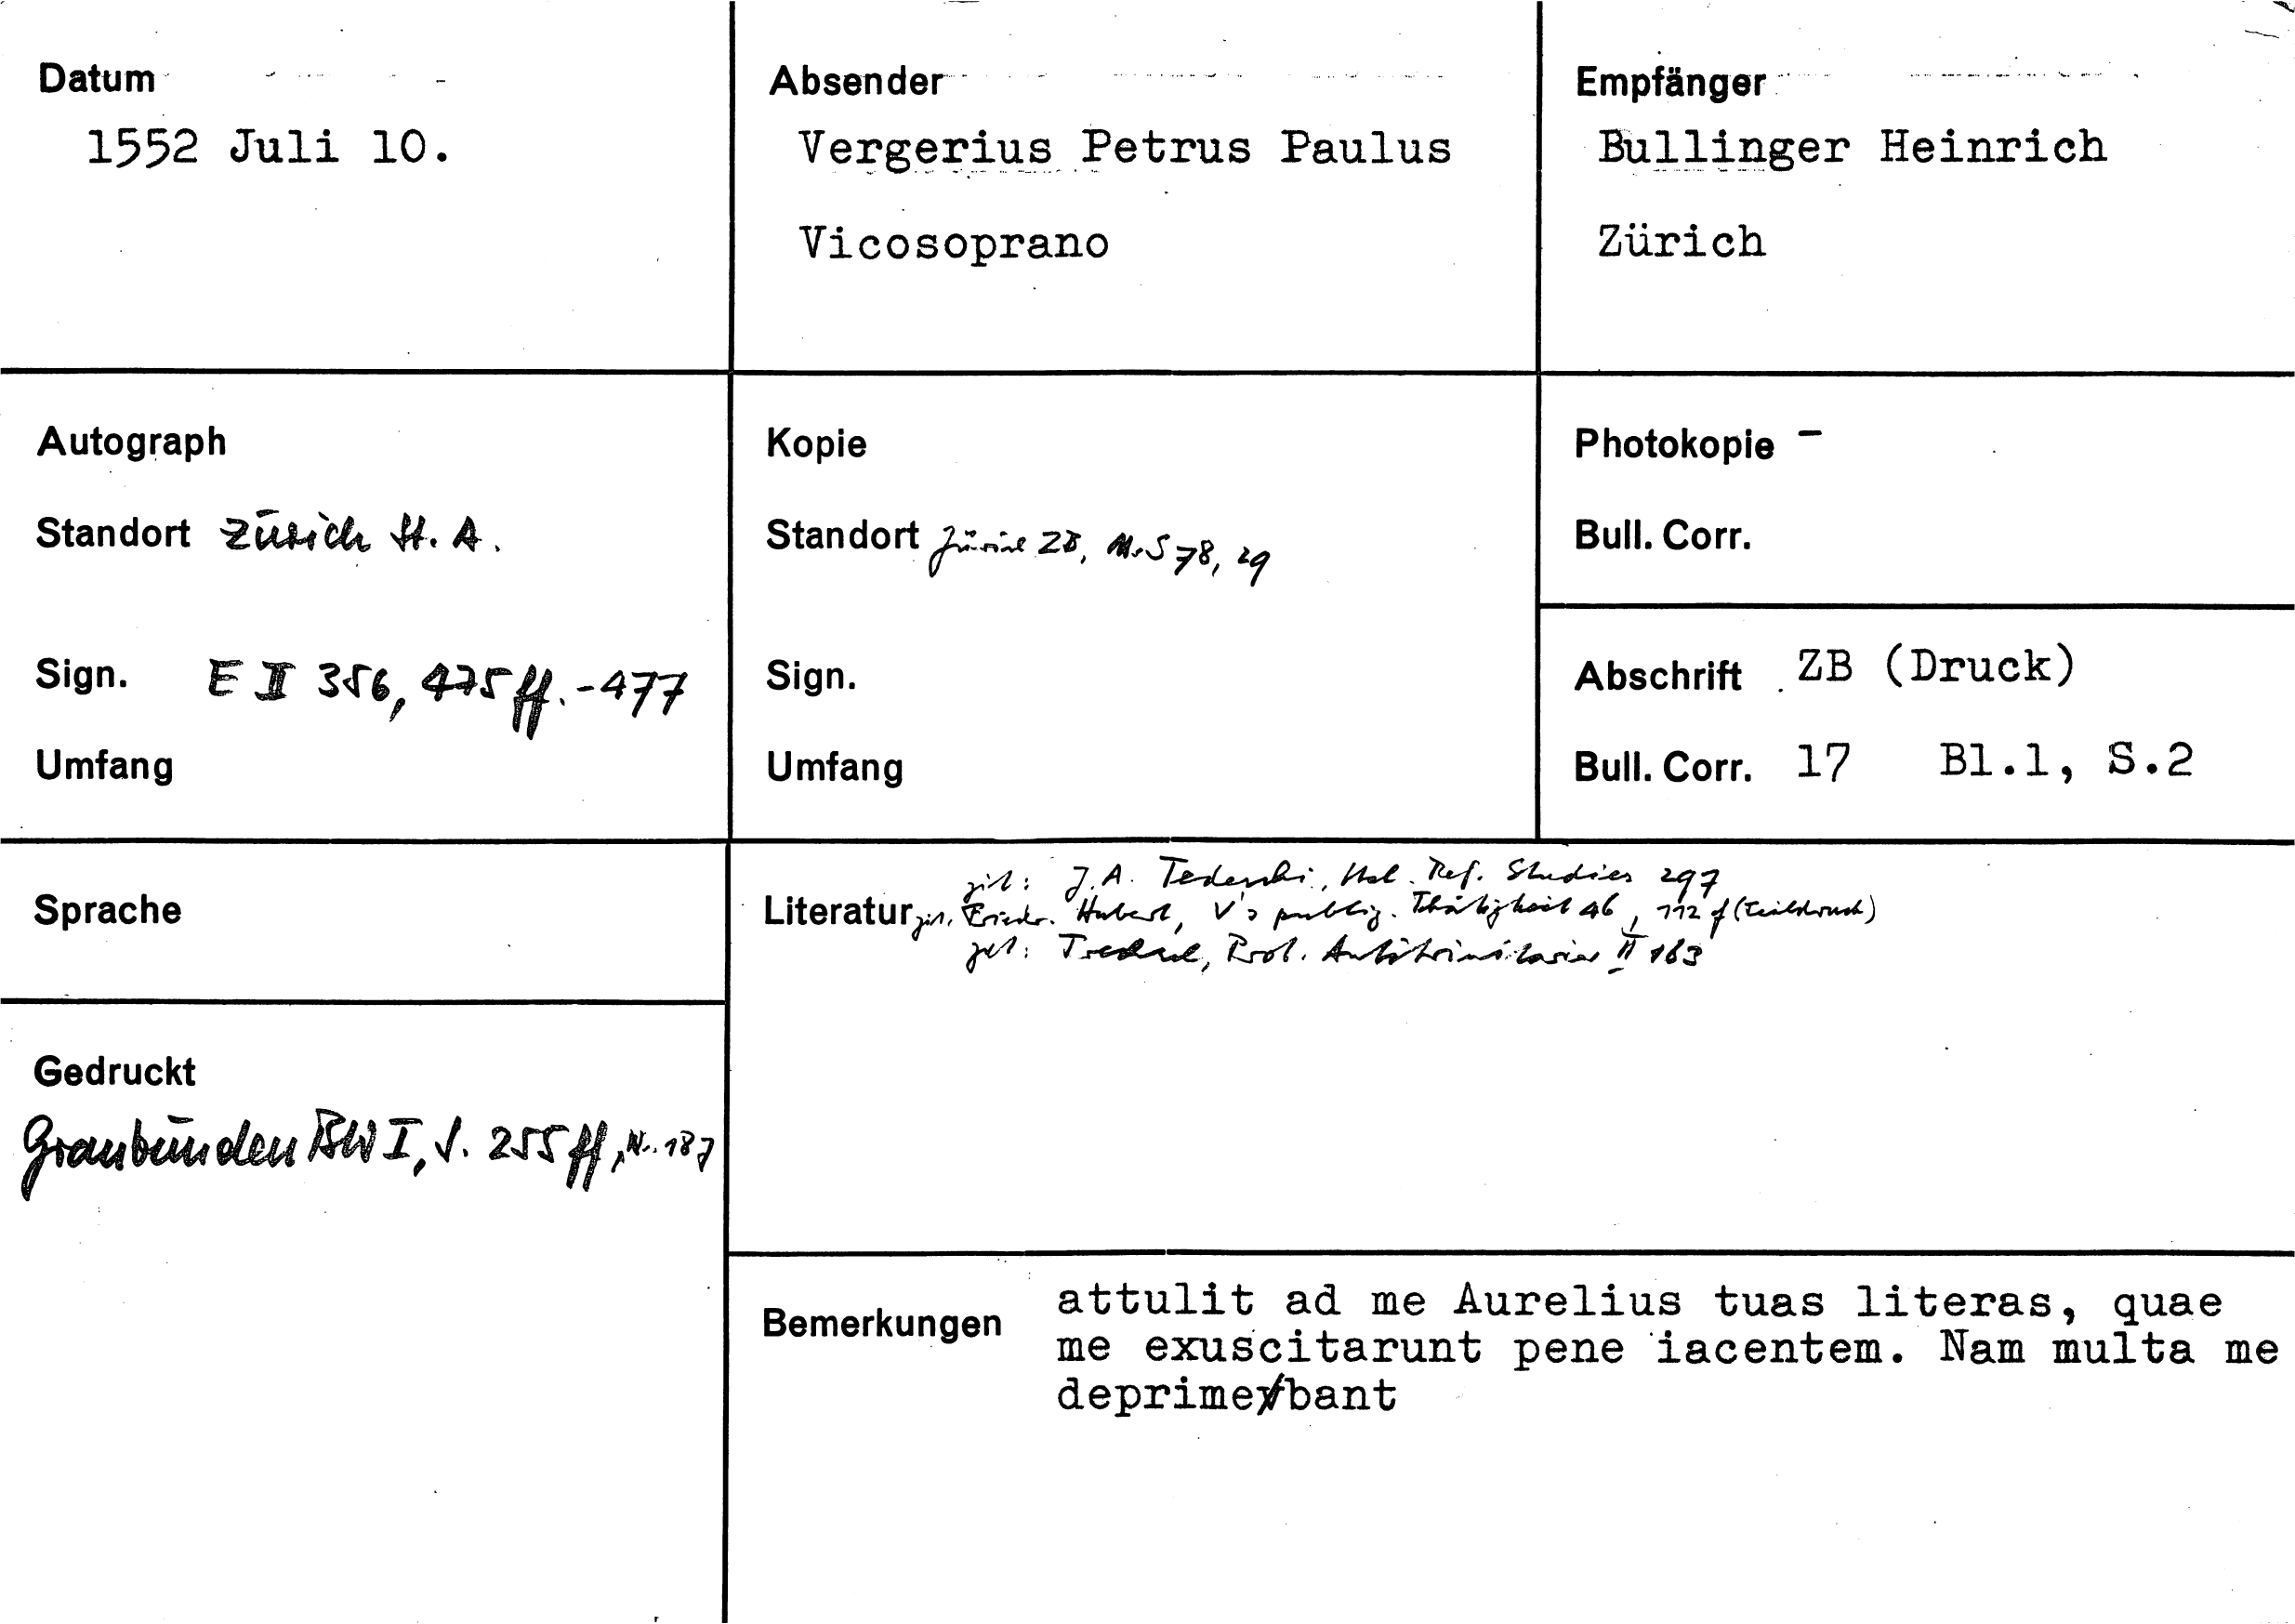 Datum
1552 Juli 10.
Absender
Vergerius Petrus Paulus
Vicosoprano
Empfänger
Bullinger Heinrich
Zürich
Autograph
Standort Zürich St. A.
Sign. E II 356, 475 ff. - 477
Umfang
Kopie
Standort Zürich ZB, Ms S 78, 29
Sign.
Umfang
Photokopie -
Bull. Corr.
Abschrift ZB (Druck)
Bull. Corr. 17 Bl.1, S.2
Sprache
Gedruckt
Graubünden BW I, S. 255 ff, Nr. 187
zit: J. A. Tedeschi, Ital. Ref. Studies 297
Literatur zit. Friedr. Hubert, V's publiz. Thätigkeit 46, 112 f (Teildruck)
zit: Trechsel, Prot. Antitrinitarier II 163
Bemerkungen
attulit ad me Aurelius tuas literas, quae
me exuscitarunt pene iacentem. Nam multa me
deprimebant